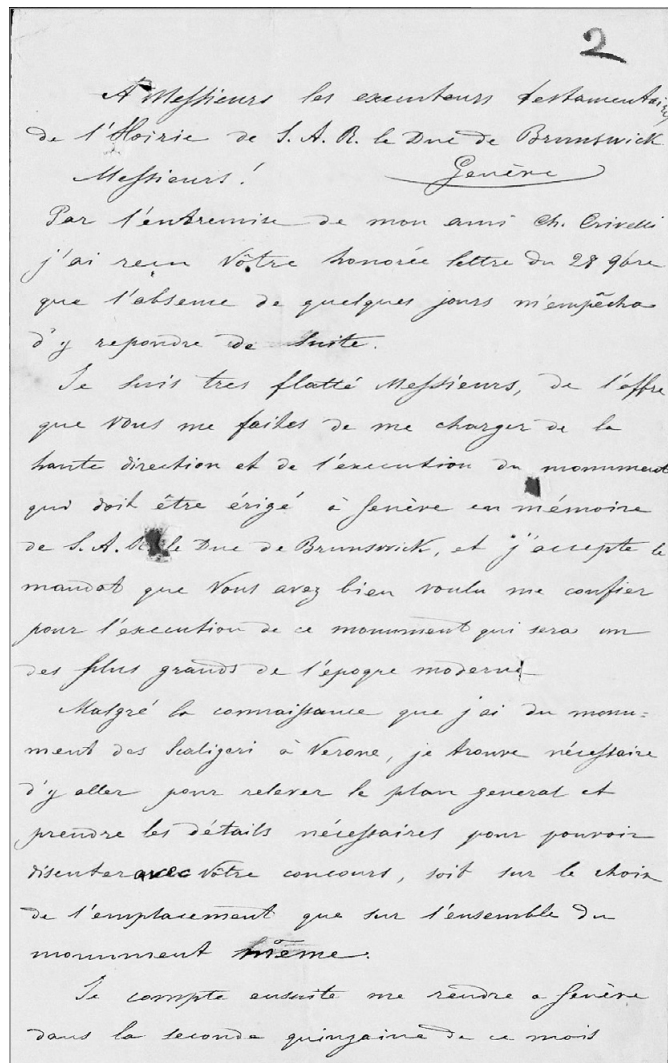 2
A Messieurs les executeurs testamentaires
de l'Hoirie de S. A. R. le Duc de Brunswick
Messieurs! Genève
Par l'entremise de mon ami Ch. Crivelli
j'ai reçu Vôtre honorée lettre du 28 9bre
que l'absense de quelques jours m'empêcha
d'y repondre de suite.
Je suis tres flatté Messieurs, de l'offre
que Vous me faites de me charger de la
haute direction et de l'execution du monument
qui doit être érigé à Genève en mémoire
de S. A. R. le Duc de Brunswick, et j'accepte le
mandat que Vous avez bien voulu me confier
pour l'execution de ce monument qui sera un
des plus grands de l'époque moderne
Malgré la connaissance que j'ai du monu=
ment des Scaligeri à Verone, je trouve nécessaire
d'y aller pour relever le plan general et
prendre les détails nécessaires pour pouvoir
discuter avec Vôtre concours, soit sur le choix
de l'emplacement que sur l'ensemble du
monument même.
Je compte ensuite me rendre a Genève
dans la seconde quinzaine de ce mois